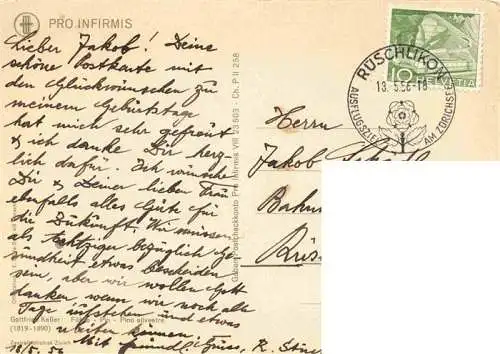 PRO INFIRMIS
Lieber Jakob! Deine
schöne Postkarte mit
den Glückwünschen zu
meinem Geburtstage
hat mich sehr gefreut
& ich danke Dir herz
lich dafür. Ich wünsche
Dir & Deiner lieben Frau
ebenfalls alles Gute für
die Zukunft. Wir müssen
als Achtziger bezüglich Ge
sundheit etwas bescheiden
sein, aber wir wollen Gott
danken, wenn wir noch alle
Tage aufstehen und etwas
arbeiten können.
Mit freundl. Gruss, R.
18/5. 56
Gottfried Keller: Föhre - Pin - Pino silvestre
(1819-1890)
Zentralbibliothek Zürich
Gaben: Postscheckkonto Pro Infirmis VIII 23 503 - Ch. P II 258
10 HELVETIA
RÜSCHLIKON
18. 5. 56-18
AUSFLUGSZIEL AM ZÜRICHSEE
Herrn
Jakob
Bahn
Rüs